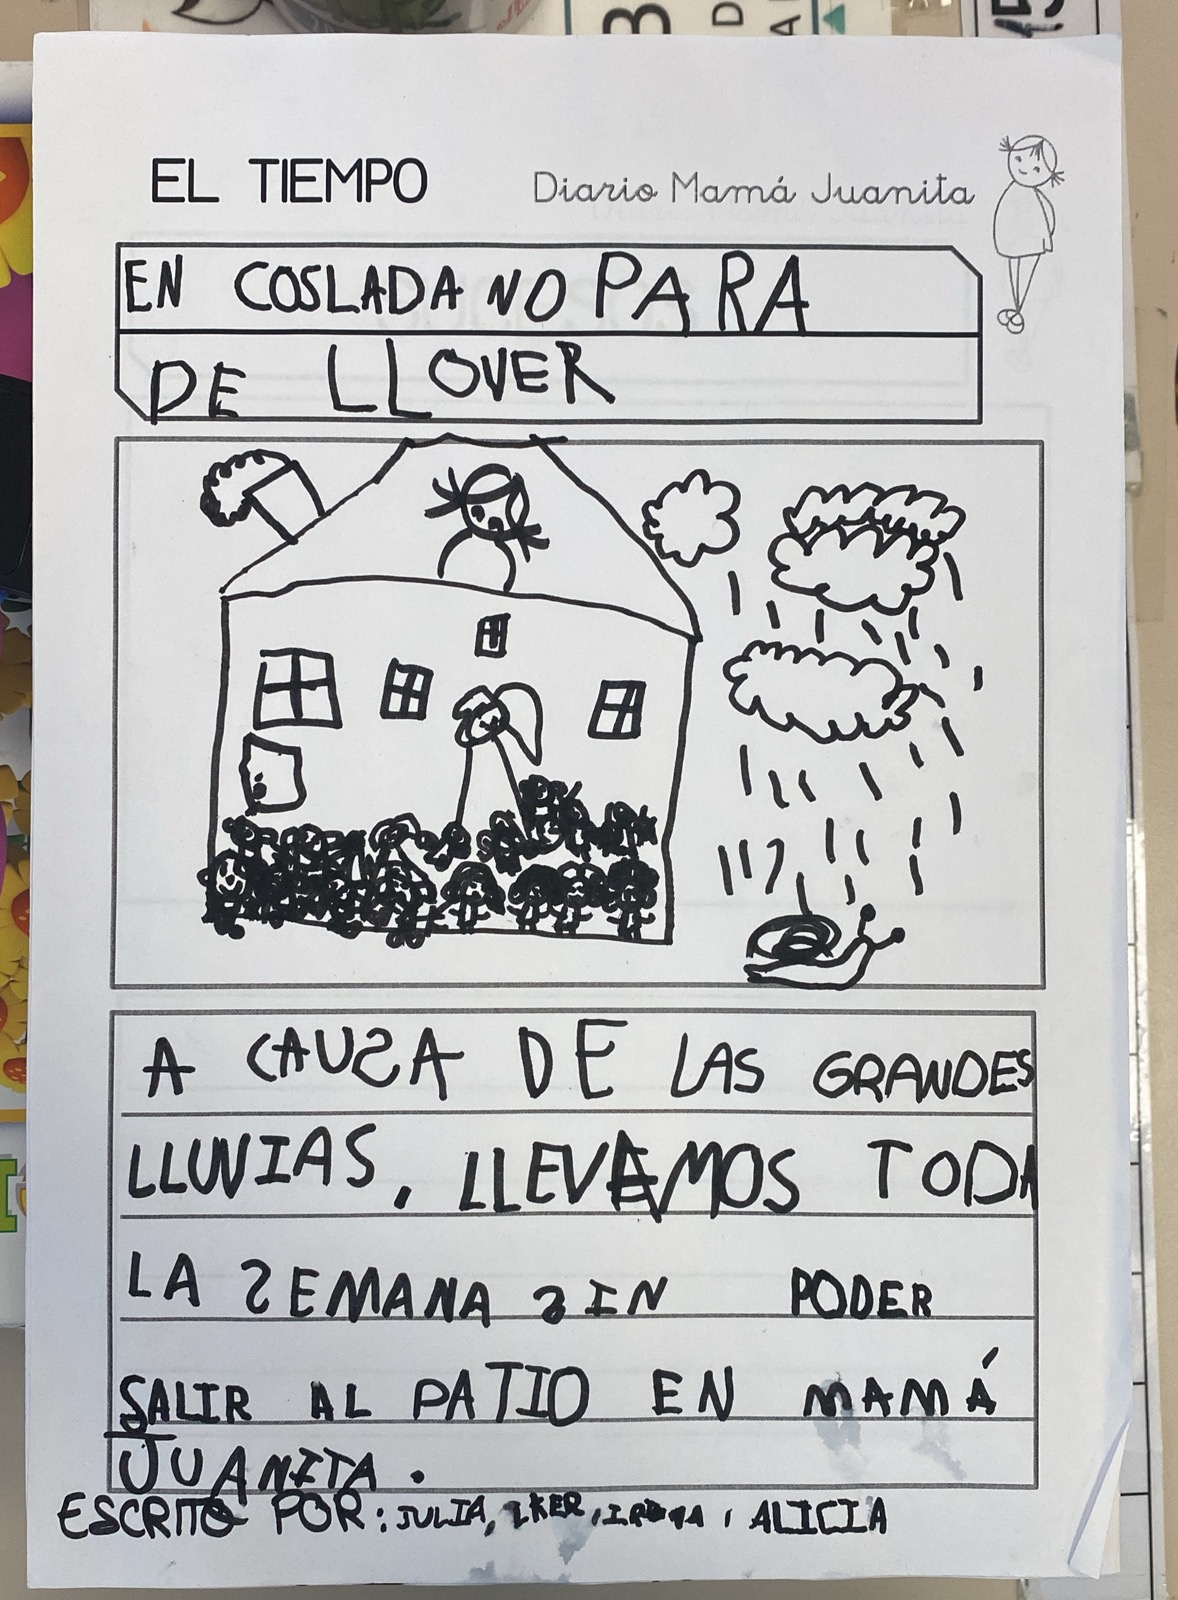 EL TIEMPO
Diario Mamá Juanita
EN COSLADA NO PARA
DE LLOVER
A CAUSA DE LAS GRANDES
LLUVIAS, LLEVAMOS TODA
LA SEMANA SIN PODER
SALIR AL PATIO EN MAMÁ
JUANITA.
ESCRITO POR: JULIA, IKER, ALICIA